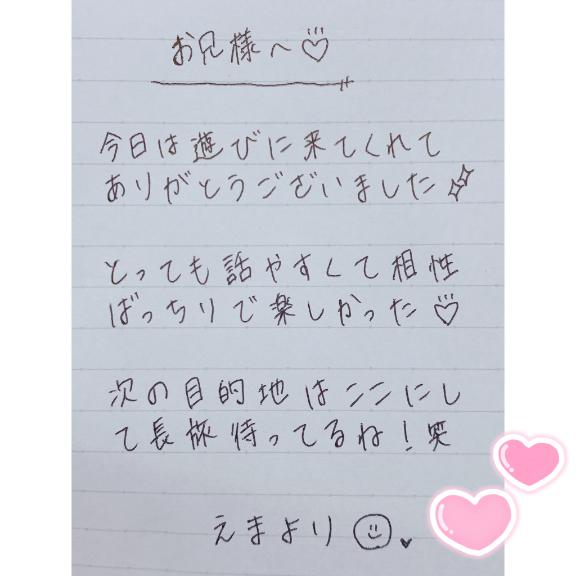 お兄様へ♡
今日は遊びに来てくれて
ありがとうございました✨
とっても話やすくて相性
ばっちりで楽しかった♡
次の目的地はここにし
て長旅待ってるね！笑
えまより☺♥